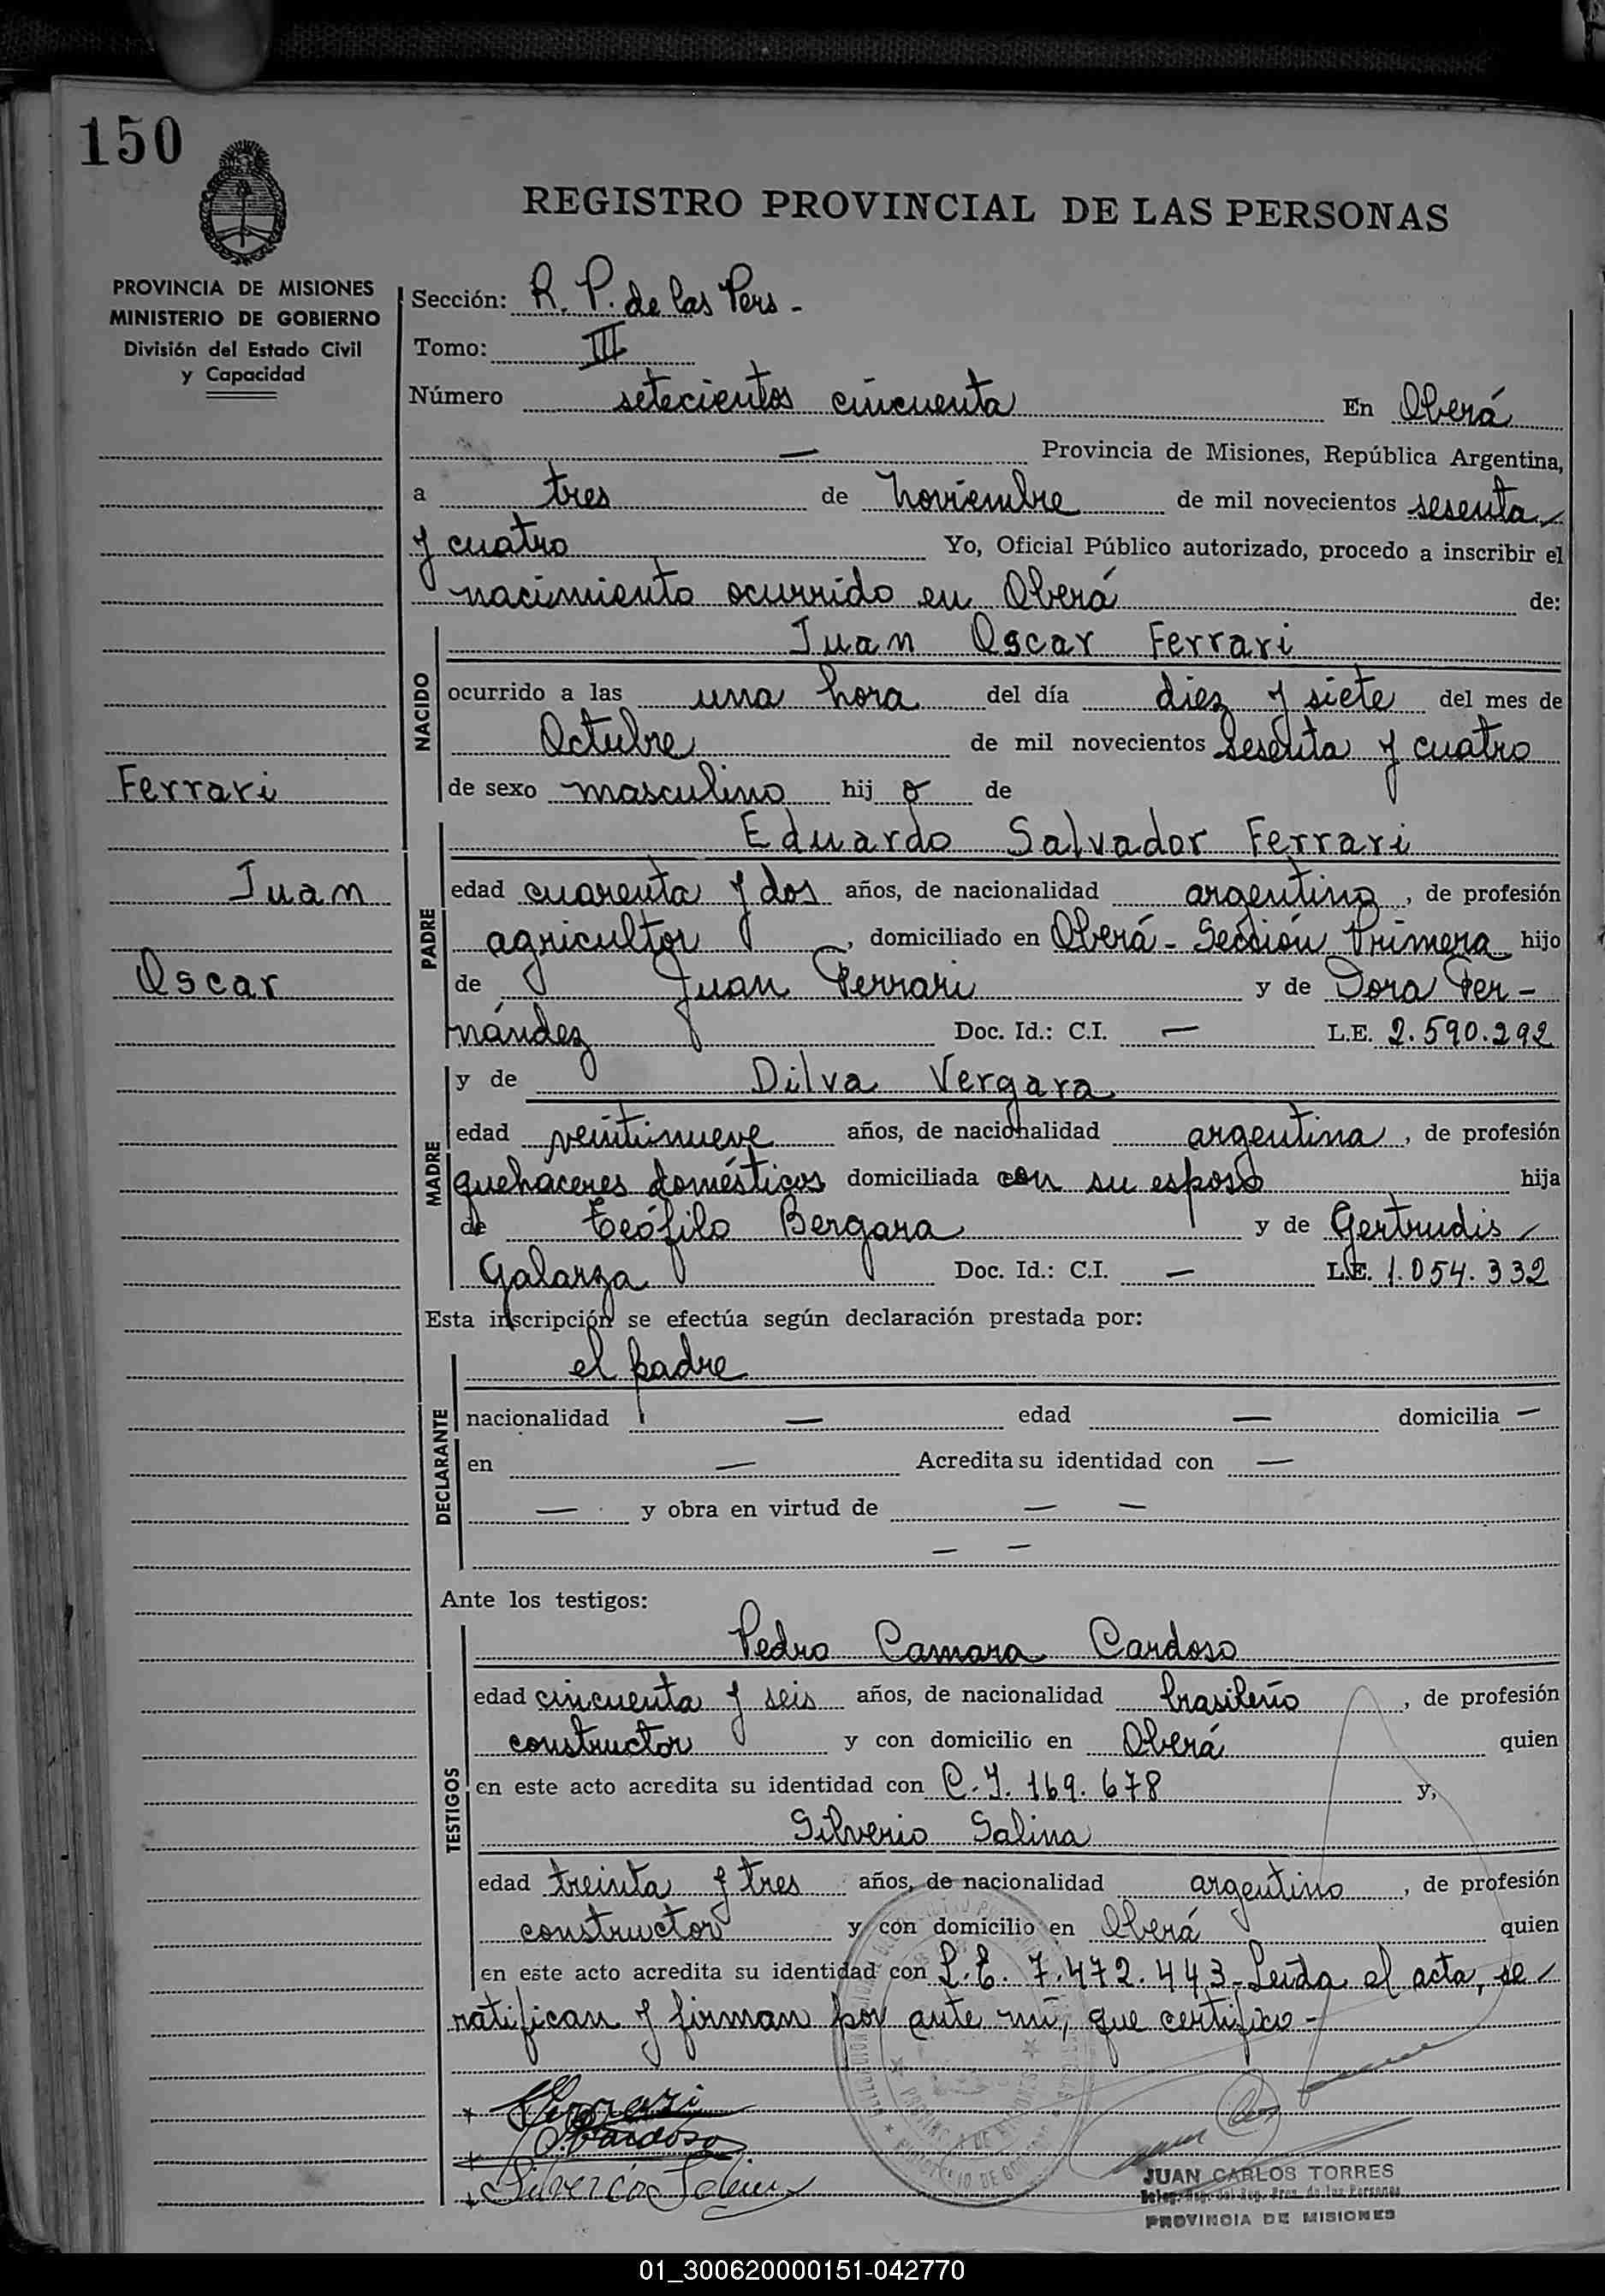 150
REGISTRO PROVINCIAL DE LAS PERSONAS
PROVINCIA DE MISIONES
MINISTERIO DE GOBIERNO
División del Estado Civil
y Capacidad
Sección: R. P. de las Pers -
Tomo: III
Número setecientos cincuenta En Oberá
— Provincia de Misiones, República Argentina,
a tres de Noviembre de mil novecientos sesenta
y cuatro Yo, Oficial Público autorizado, procedo a inscribir el
nacimiento ocurrido en Oberá de:
NACIDO
Juan Oscar Ferrari
ocurrido a las una hora del día diez y siete del mes de
Octubre de mil novecientos sesenta y cuatro
de sexo masculino hij o de
Ferrari
Juan
Oscar
PADRE
Eduardo Salvador Ferrari
edad cuarenta y dos años, de nacionalidad argentino, de profesión
agricultor, domiciliado en Oberá - Sección Primera hijo
de Juan Ferrari y de Dora Fer-
nández Doc. Id.: C.I. — L.E. 2.590.292
MADRE
y de Dilva Vergara
edad veintinueve años, de nacionalidad argentina, de profesión
quehaceres domésticos domiciliada con su esposo hija
de Teófilo Bergara y de Gertrudis
Galarza Doc. Id.: C.I. — L.E. 1.054.332
Esta inscripción se efectúa según declaración prestada por:
DECLARANTE
el padre
nacionalidad — edad — domicilia —
en — Acredita su identidad con —
— y obra en virtud de — —
— —
Ante los testigos:
TESTIGOS
Pedro Camara Cardoso
edad cincuenta y seis años, de nacionalidad brasileño, de profesión
constructor y con domicilio en Oberá quien
en este acto acredita su identidad con C.I. 169.678 y,
Silverio Salina
edad treinta y tres años, de nacionalidad argentino, de profesión
constructor y con domicilio en Oberá quien
en este acto acredita su identidad con L.E. 7.472.443 - Leída el acta, se
ratifican y firman por ante mí, que certifico -
Ferrari
Cardoso
Silverio Salina
JUAN CARLOS TORRES
PROVINCIA DE MISIONES
01_300620000151-042770